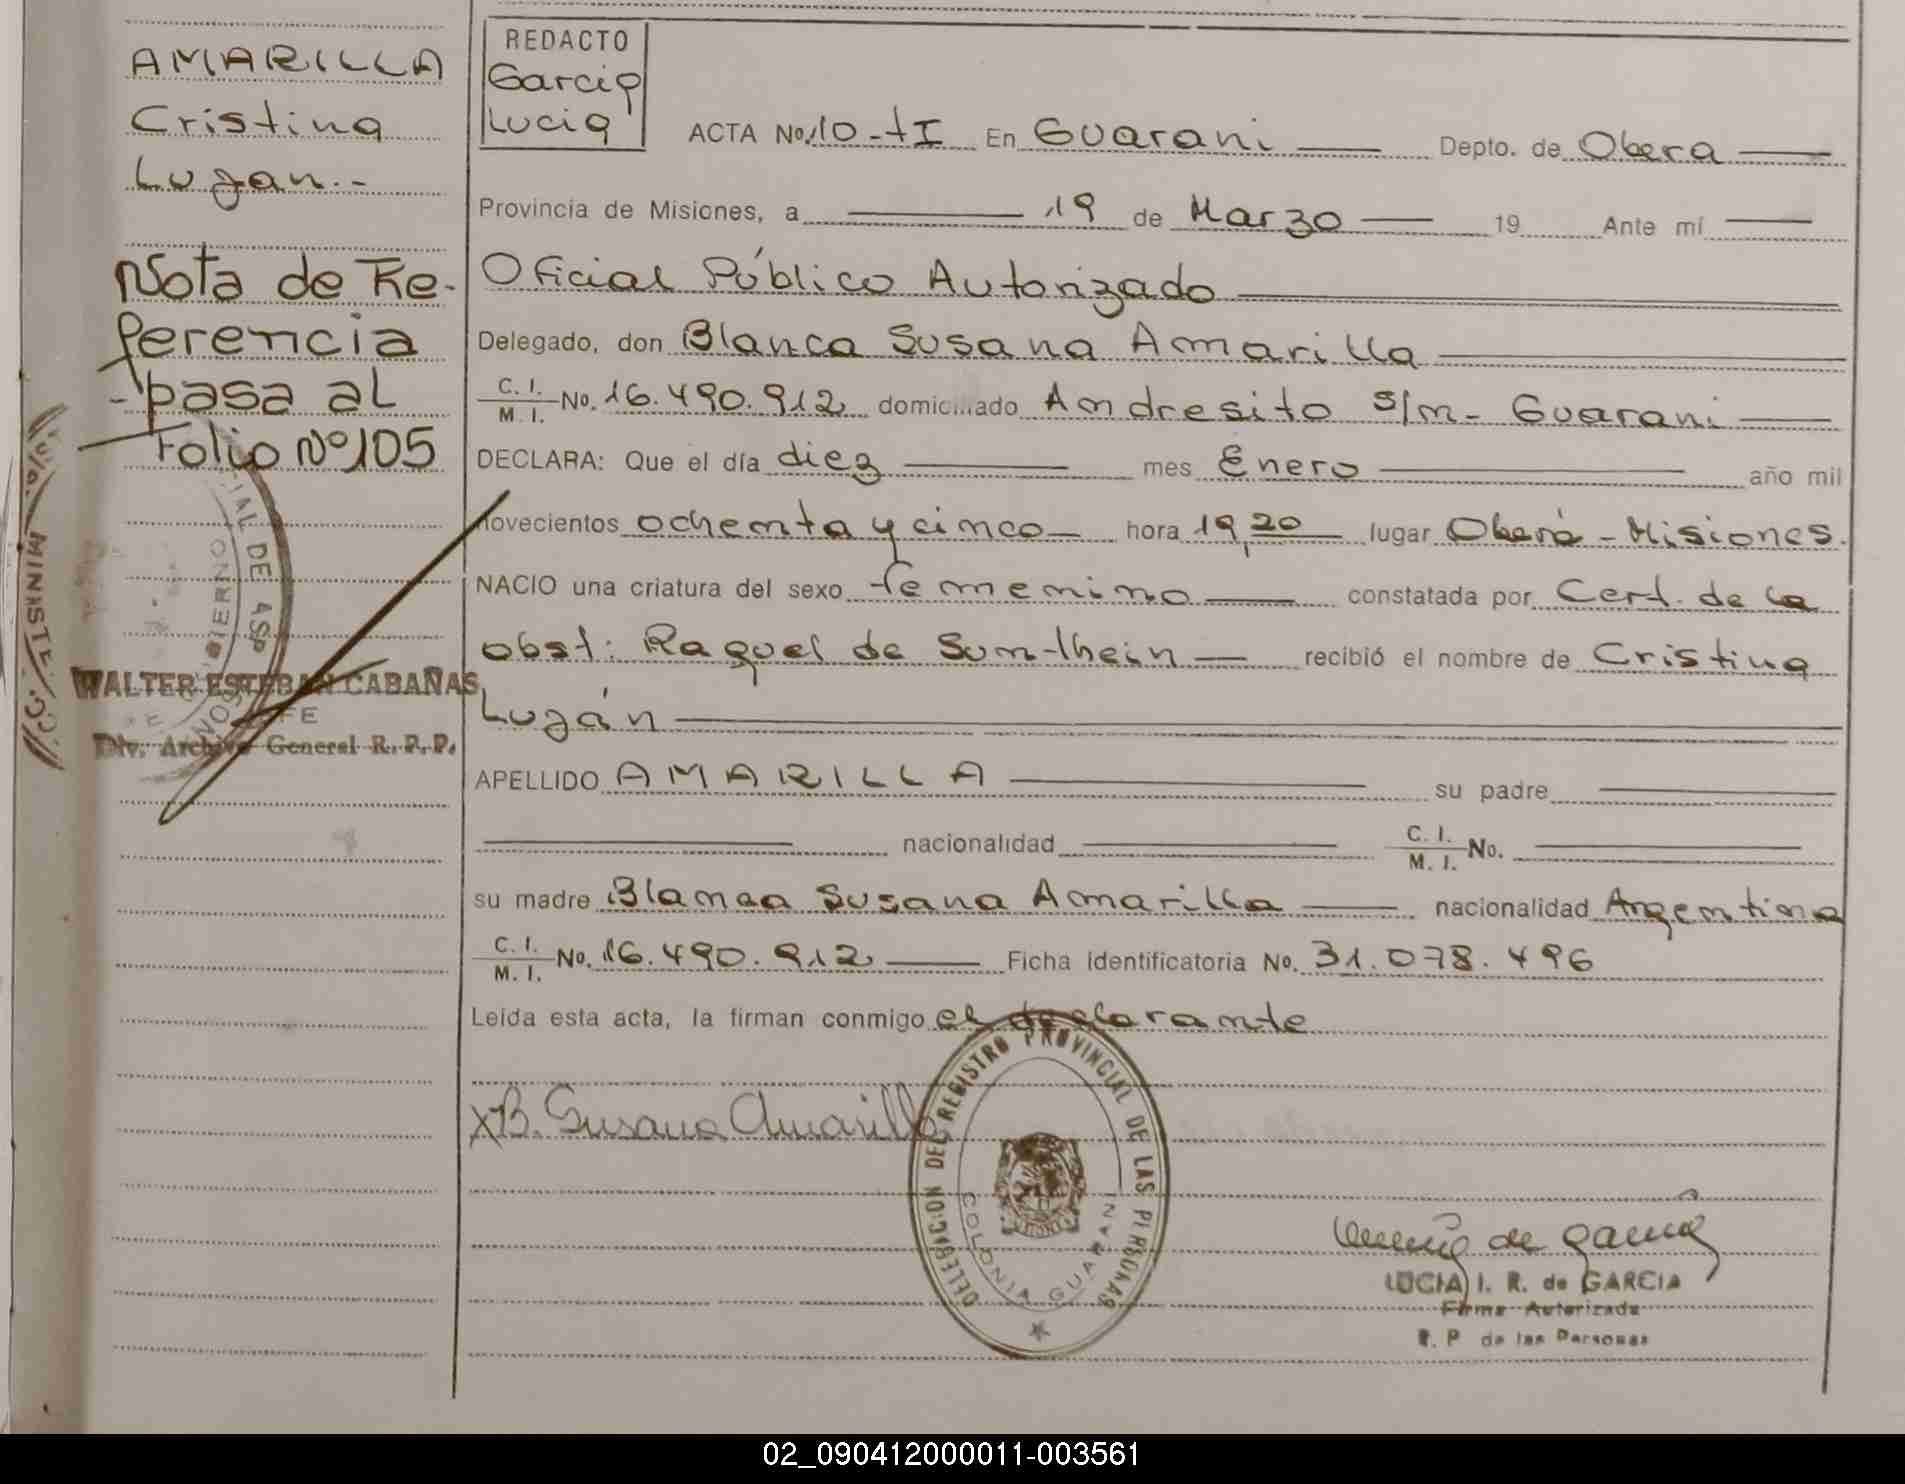 AMARILLA
Cristina
Luján.-
Nota de Re-
ferencia
-pasa al
Folio Nº 105
WALTER ESTEBAN CABAÑAS
JEFE
Div. Archivo General R.P.P.
MINISTE
REDACTO
Garcia
Lucia
ACTA No. 10-tI En Guarani Depto. de Obera
Provincia de Misiones, a 19 de Marzo 19 Ante mí
Oficial Público Autorizado
Delegado, don Blanca Susana Amarilla
C. I. / M. I. No. 16.490.912 domiciliado Andresito s/n- Guarani
DECLARA: Que el día diez mes Enero año mil
novecientos ochenta y cinco hora 19,20 lugar Oberá - Misiones.
NACIO una criatura del sexo femenino constatada por Cert. de la
obst: Raquel de recibió el nombre de Cristina
Luján
APELLIDO AMARILLA su padre
nacionalidad C. I. / M. I. No.
su madre Blanca Susana Amarilla nacionalidad Argentina
C. I. / M. I. No. 16.490.912 Ficha identificatoria No. 31.078.496
Leída esta acta, la firman conmigo el declarante
XB. Susana Amarilla
DELEGACION DEL REGISTRO PROVINCIAL DE LAS PERSONAS
COLONIA GUARANI
de Garcia
LUCIA I. R. de GARCIA
Firma Autorizada
R. P de las Personas
02_090412000011-003561